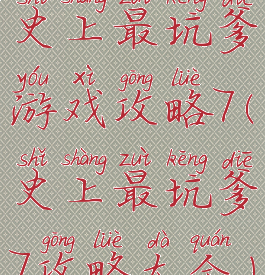 shǐ shàng zuì kēng diē
史上最坑爹
yóu xì gōng lüè
游戏攻略7(
shǐ shàng zuì kēng diē
史上最坑爹
gōng lüè dà quán
7攻略大全)